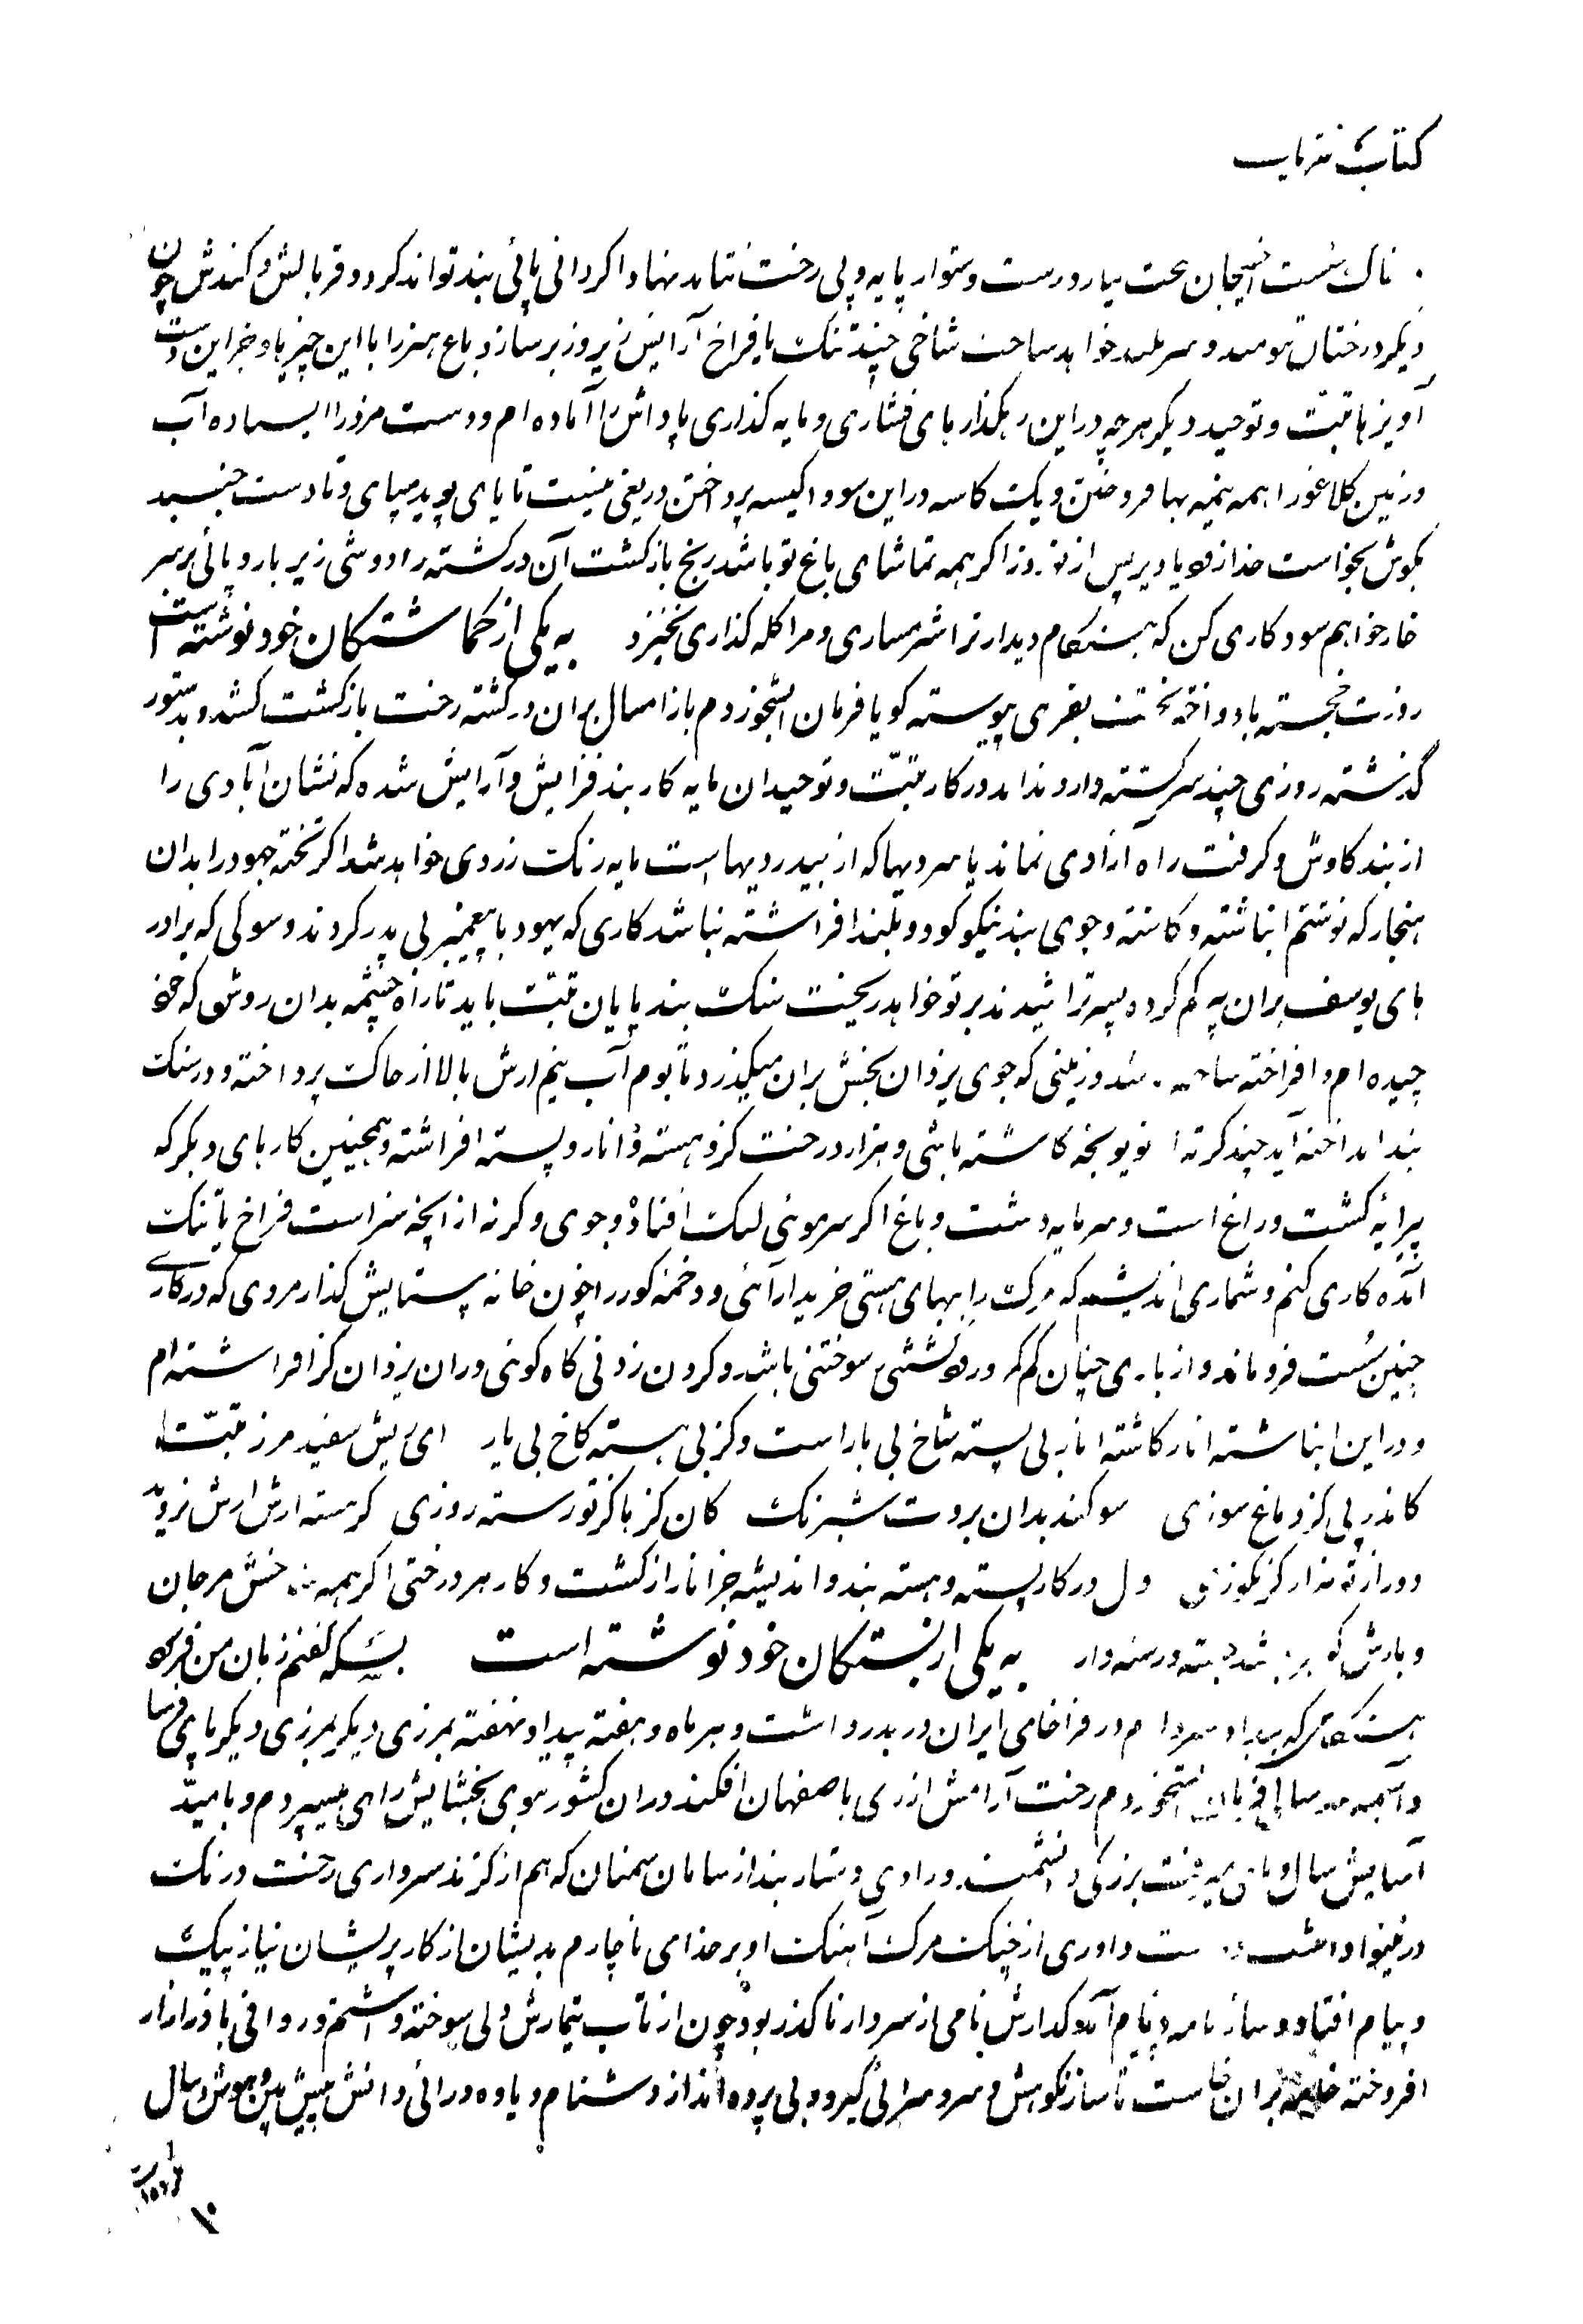 کتاب
تاک سست بیار و رست و ستوار پایه و پی رخت نتاند نهاد اگر دانی پائی بند تواند کرد و فر بالش و کندش چون
دیگر درختان تومند و سر بلند خواهد ساخت شاخی چند تنک یا فراخ آرایش زیر و زبر ساز و باغ هنر را با این چیز یا و جز این دست
آویزها تبت و توحید دیگر هر چه در این رهگذار پای فشاری و مایه گذاری پاداش را آماده ام و دست مزد را ایستاده آب
و زمین کلاغو را همه نیمه بها فروختن و یک کاسه در این سودا کیسه پرداختن دریغی نیست تا پای پوید بپای و تا دست جنبد
بکوش بخواست خدا زود یا دیر پس از نوروز اگر همه تماشای باغ تو باشد رنج بازگشت آن در کشته را دوشی زیر بار و پائی بر سر
خار خواهم سود کاری کن که هنگام دیدار ترا شرمساری و مرا گله گذاری نخیزد به یکی از گماشتگان خود نوشته است
روزت خجسته باد و اختر تخت بفری پیوسته گویا فرمان اشجوزدم باز امسال بران در کشته رخت بازگشت کشد و بدستور
گذشته روزی چند سرگشته دارد نداند در کار تبت و توحیدان مایه کار بند فزایش و آرایش شده که نشان آبادی را
از بند کاوش و گرفت راه آزادی نماند یا سردیها که از بید ردیهاست مایه رنگ زردی خواهد شد اگر تخته جهود را بدان
هنجار که نوشتم انباشته و کاشته و جوی بند نیکو گود و بلند افراشته نباشد کاری که یهود با پیمبر بی پدر کردند و سوکی که برادر
های یوسف بران پیر گم کرده پسر تراشیدند بر تو خواهد ریخت سنگ بند پایان تبت باید تا راه چشمه بدان روش که خود
چیده ام و افراخته ساخته شد و زمینی که جوی یزدان بخش بران میگذرد تا بوم آب نیم ارش بالا از خاک پرداخته و در سنگ
بند انداخته آید چند کرته یونجه کاشته باشی و هزار درخت گز و هسته و انار و پسته افراشته و همچنین کارهای دیگر که
پیرایه کشت و راغ است و سرمایه دشت و باغ اگر سر موئی لنگ افتاد و جوی و کرته از آنچه سزاست فراخ یا تنگ
آمد کاری کنم و شماری اندیشم که مرگ را ببهای هستی خریدار آئی و دخمه گور را چون خانه پرستایش گذار مردی که در کاری
چنین سست فرو ماند و از باری چنان کم کمر در سوختنی باشد و گردن زدنی گاه گونی دران یزدان گز افراشته ام
و در این انباشته انار کاشته انار بی پسته شاخ بی بار است و گز بی هسته کاخ بی یار ای ریش سفید مرز تبت
کاندر پی گز دماغ سوزی سوگند بدان بروت شبرنگ کان گز با گز تو رسته روزی گر هسته ارش ارش نروید
دور از تو ندار گز بگوزی ول در کار پسته و هسته بند و اندیشه جز انار از کشت و کار هر درختی اگر همه خسش مرجان
و بارش گو بسته ور سته دار به یکی از بستگان خود نوشته است بس که گفتم زبان من فرسود
هنگامی که سردارم در فراخنای ایران در بدر داشت و هر ماه و هفته پیدا و نهفته بمرزی دیگر بمرزی دیگر پای فرسا
سال استخوزدم رخت آرامش از ری با صفهان افکند دران کشور بوی بخشایش راهی میسپردم و بامید
آسایش سال و بزرگی دانشمند و رادی دستار بند از سامان سمنان که هم از گزند سرداری رخت درنگ
در نینوا داشت داوری از چنگ مرگ آهنگ او بر خدای ناچارم بدیشان از کار پریشان نیاز پیک
و پیام افتاد و ساز نامه و پیام آمد و گذارش نامی از سردار ناگذر بود چون از تاب تیمارش دلی سوخته داشتم و روانی با آذر آزار
افروخته خامه بران خاست تا ساز نکوهش و سرد سرائی گیرد و بی پرده انداز دشنام و یاوه درائی دانش پیش بین و هوش سال